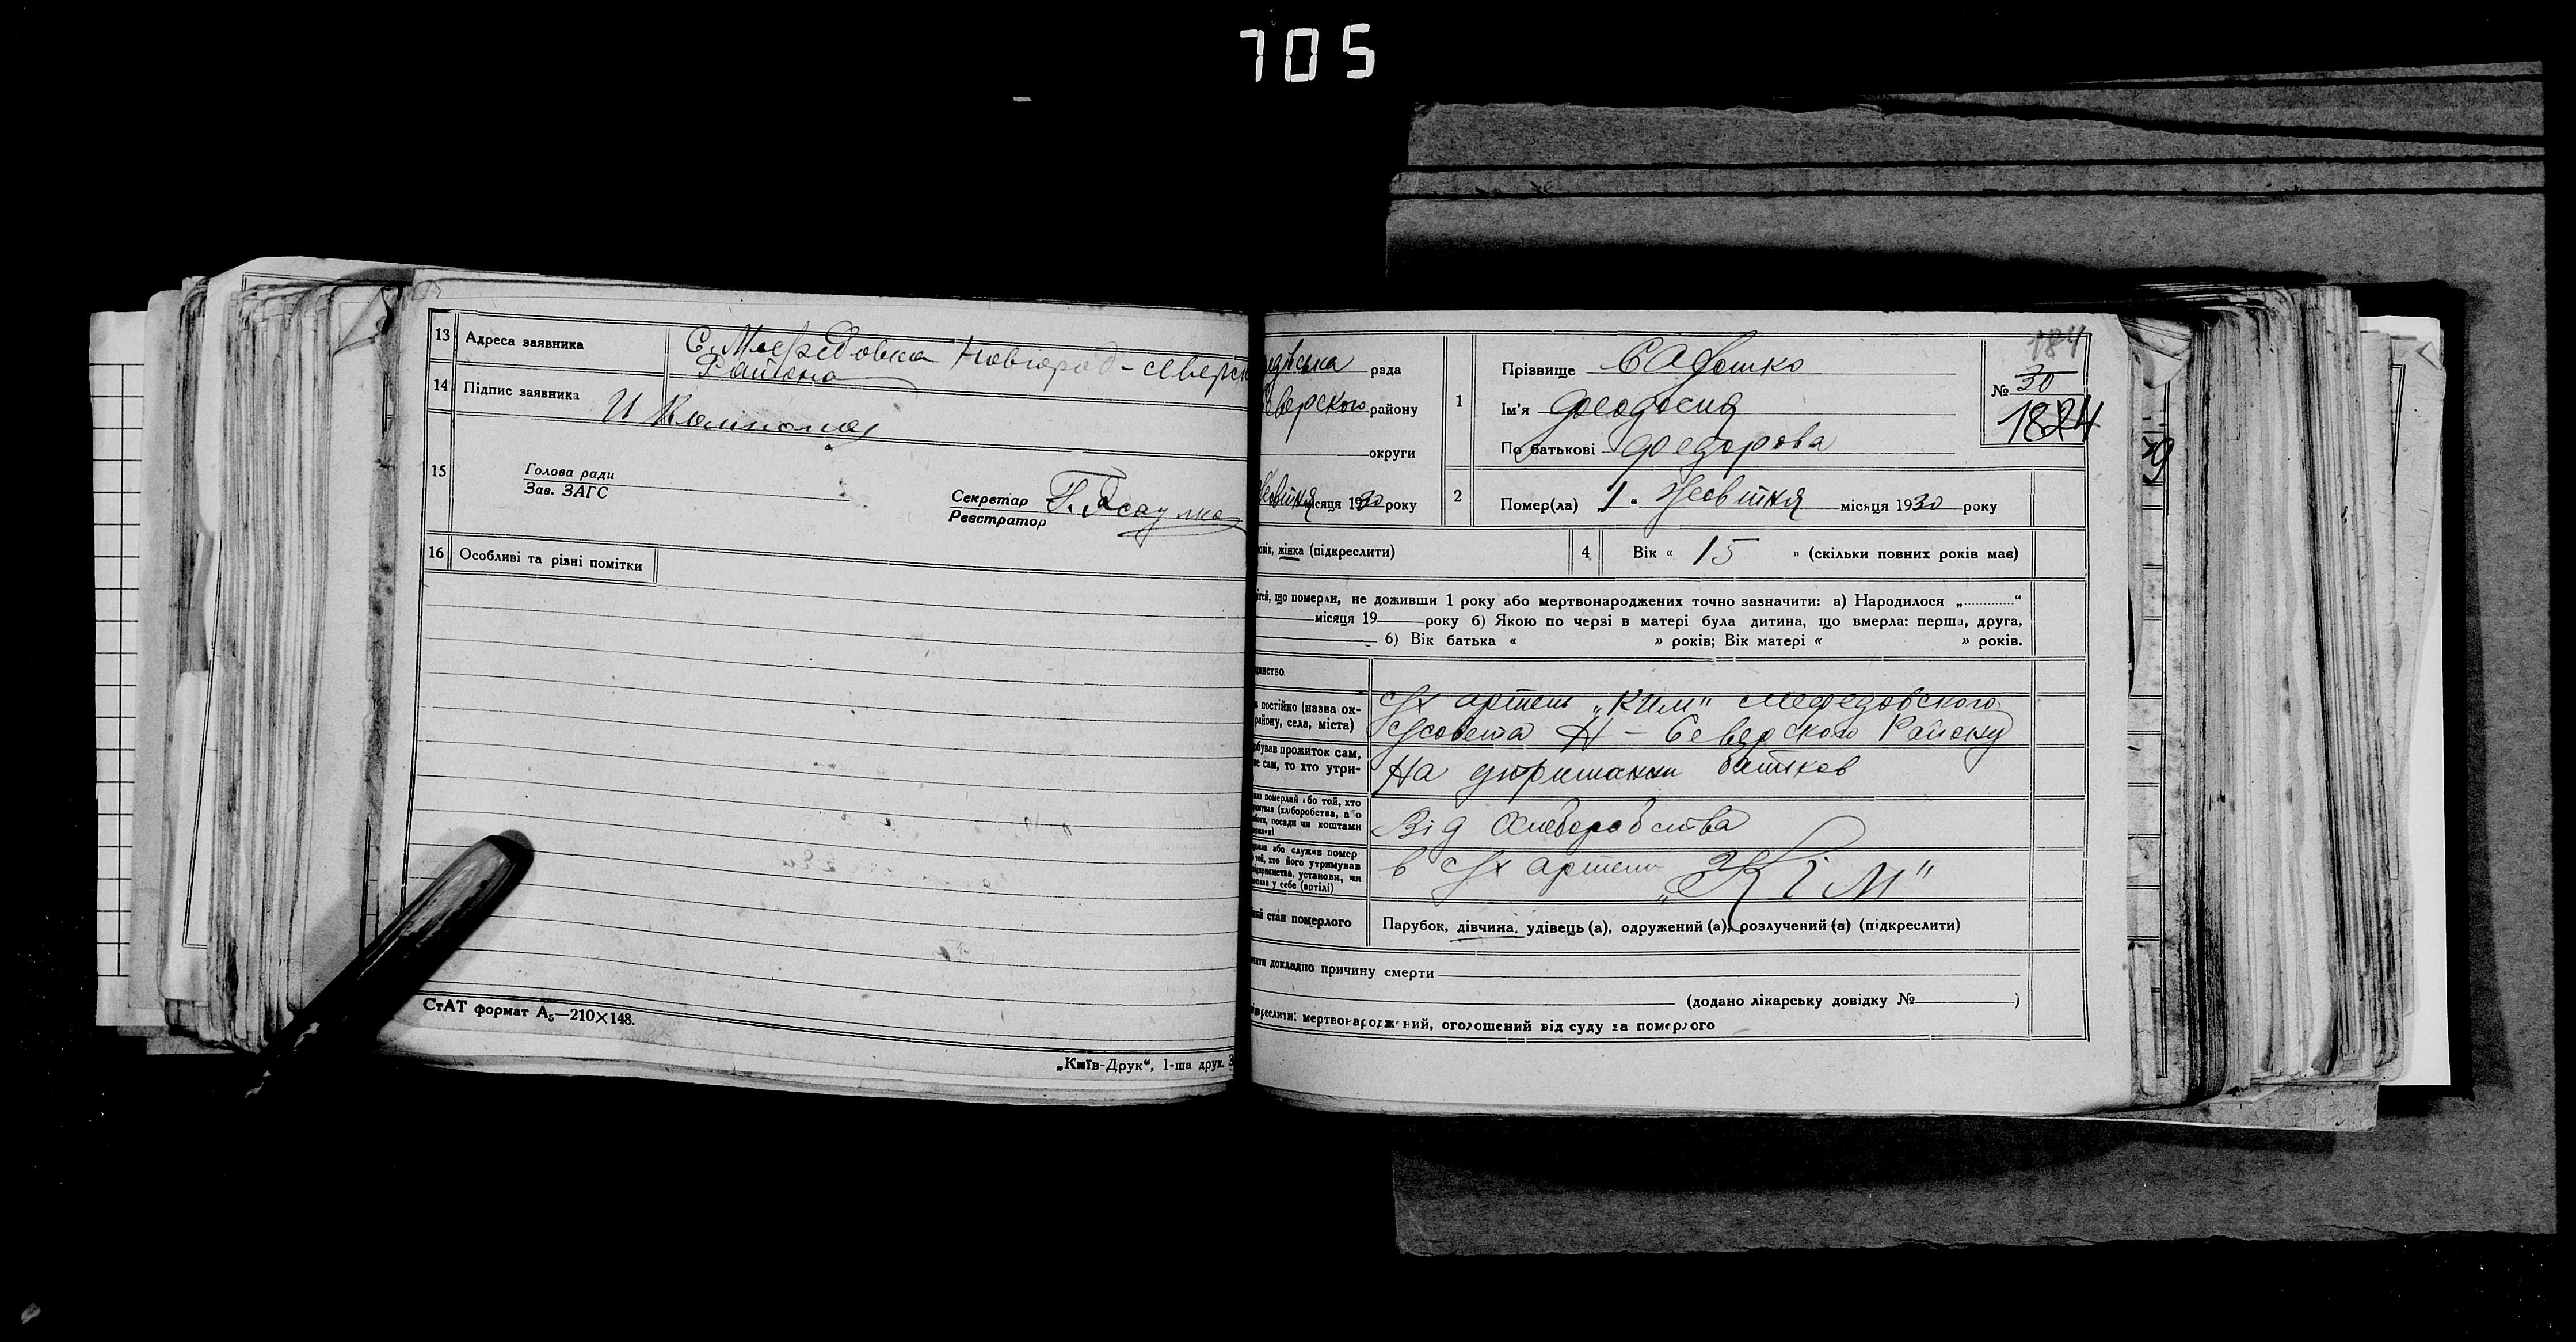 705
13 Адреса заявника С. Мефедовка Новгород-северск
Района
14 Підпис заявника И
15 Голова ради
Зав. ЗАГС
Секретар
Реєстратор
16 Особливі та рівні помітки
СтАТ формат А₅—210×148.
„Київ-Друк“, 1-ша друк.
184
рада
1 Прізвище
№ 30
1824
верского району
Ім'я Феодосия
округи
По батькові Федорова
місяця 1930 року
2 Помер(ла) „1“ Жовтня місяця 1930 року
жінка (підкреслити)
4 Вік « 15 » (скільки повних років має)
що померли, не доживши 1 року або мертвонароджених точно зазначити: а) Народилося „............“
місяця 19 року б) Якою по черзі в матері була дитина, що вмерла: перша, друга,
б) Вік батька « » років; Вік матері « » років.
постійно (назва ок-
району, села, міста)
с/х артель „КИМ“ Мефедовского
с/совета Н-Северского Району
прожиток сам,
сам, то хто утри-
На утриманни батьков
померлий або той, хто
(хліборобства, або
посади чи коштами
Від хлеборобства
або служив помер
хто його утримував
установи, чи
у себе (артілі)
в с/х артели „КІМ“
стан померлого Парубок, дівчина, удівець (а), одружений (а), розлучений (а) (підкреслити)
докладно причину смерти
(додано лікарську довідку № )
мертвонароджений, оголошений від суду за померлого